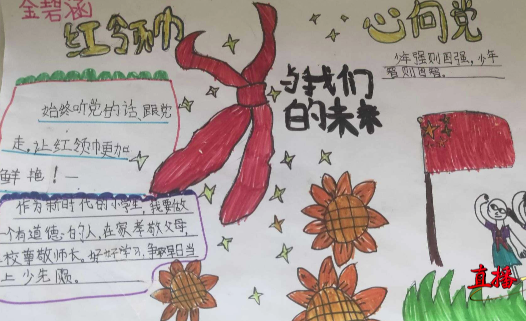 金碧涵
红领巾
心向党
与我们
的未来
少年强则国强,少年
智则国智。
始终听党的话,跟党
走,让红领巾更加
鲜艳!
作为新时代的小学生,我要做
一个有道德的人,在家孝敬父母,
校尊敬师长。好好学习,争取早日当
上少先队。
直播